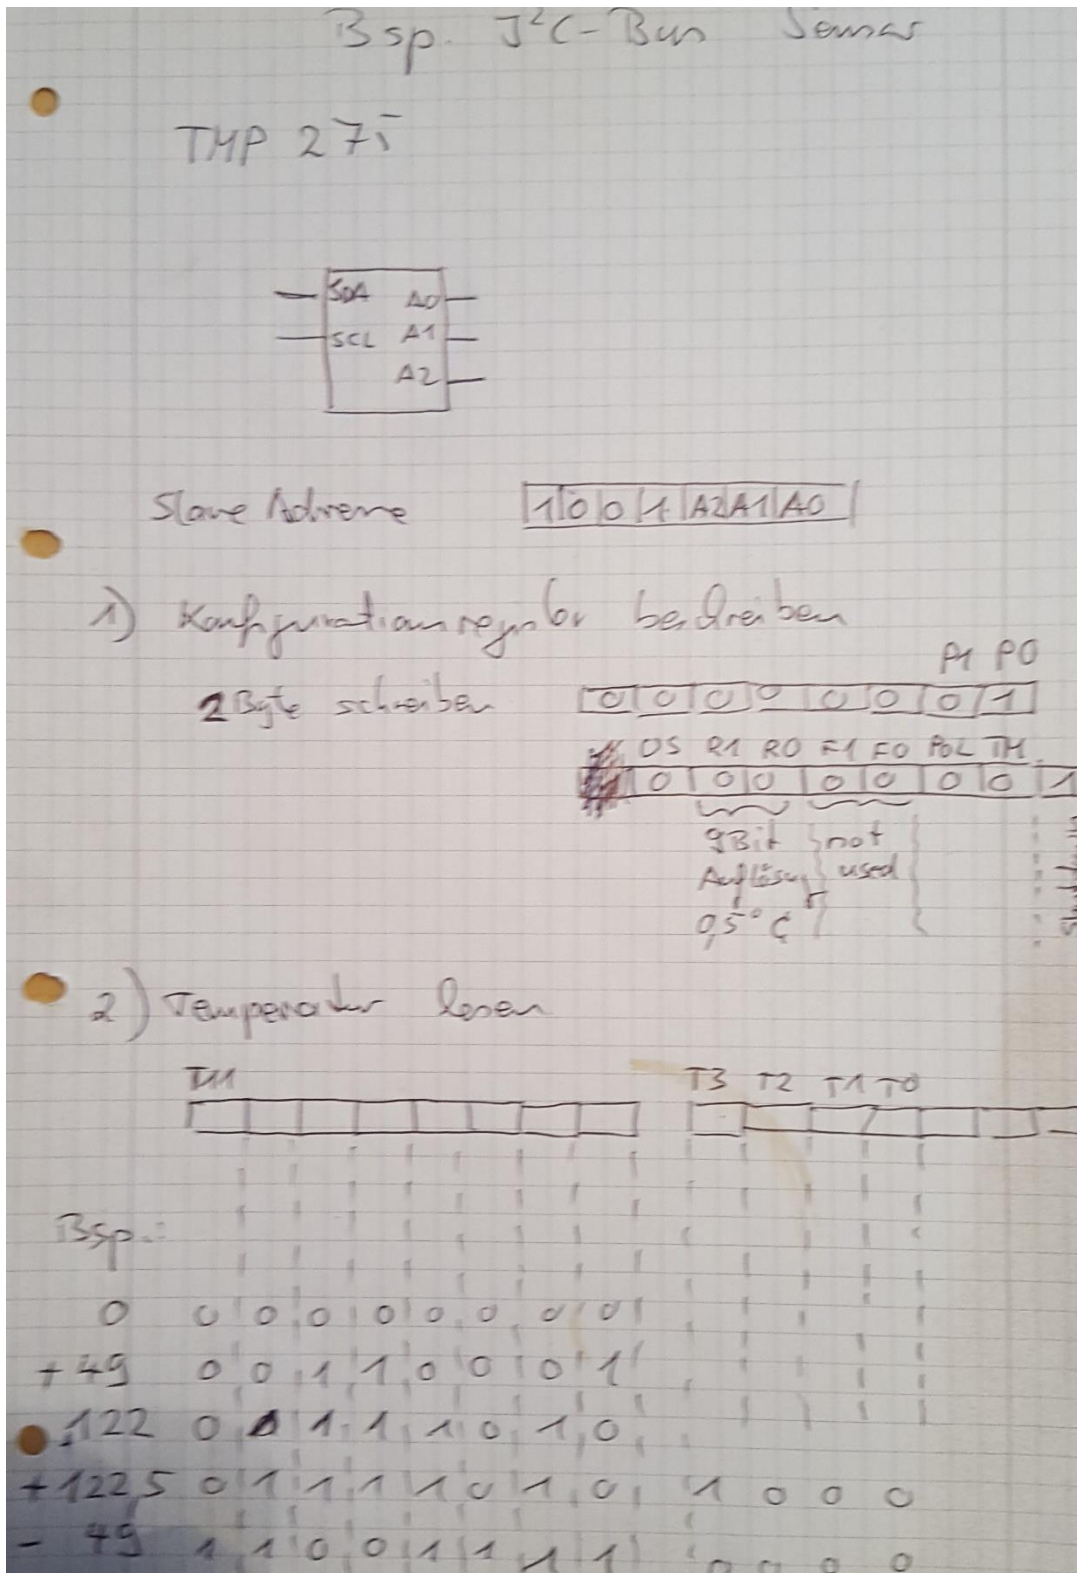 Bsp. I²C-Bus Sensor
TMP 275
SDA A0
SCL A1
A2
Slave Adresse 1 0 0 1 A2 A1 A0
1) Konfigurationsregister beschreiben
P1 P0
2 Byte schreiben 0 0 0 0 0 0 0 1
OS R1 R0 F1 F0 POL TM
0 0 0 0 0 0 0 1
9Bit not
Auflösung used
0,5°C
2) Temperatur lesen
T11 T3 T2 T1 T0
Bsp.:
0 0 0 0 0 0 0 0 0
+49 0 0 1 1 0 0 0 1
122 0 1 1 1 1 0 1 0
+122,5 0 1 1 1 1 0 1 0 1 0 0 0
- 49 1 1 0 0 1 1 1 1 0 0 0 0